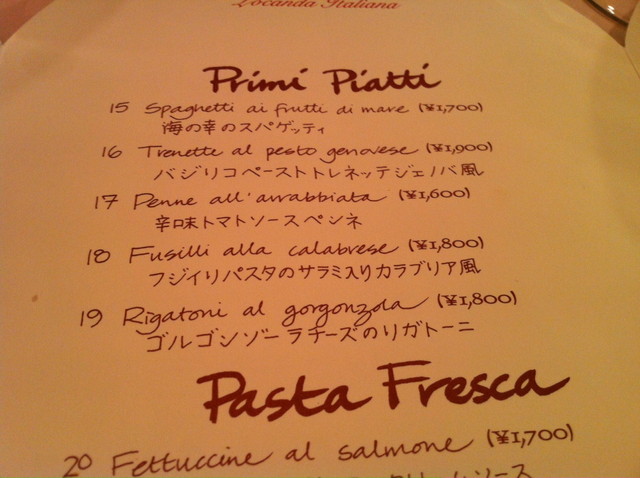 Locanda Italiana
Primi Piatti
15 Spaghetti ai frutti di mare (¥1,700)
海の幸のスパゲッティ
16 Trenette al pesto genovese (¥1,900)
バジリコペーストトレネッテジェノバ風
17 Penne all'arrabbiata (¥1,600)
辛口味トマトソースペンネ
18 Fusilli alla calabrese (¥1,800)
フジイリパスタのサラミ入りカラブリア風
19 Rigatoni al gorgonzola (¥1,800)
ゴルゴンゾーラチーズのリガトーニ
Pasta Fresca
20 Fettuccine al salmone (¥1,700)
クリームソース